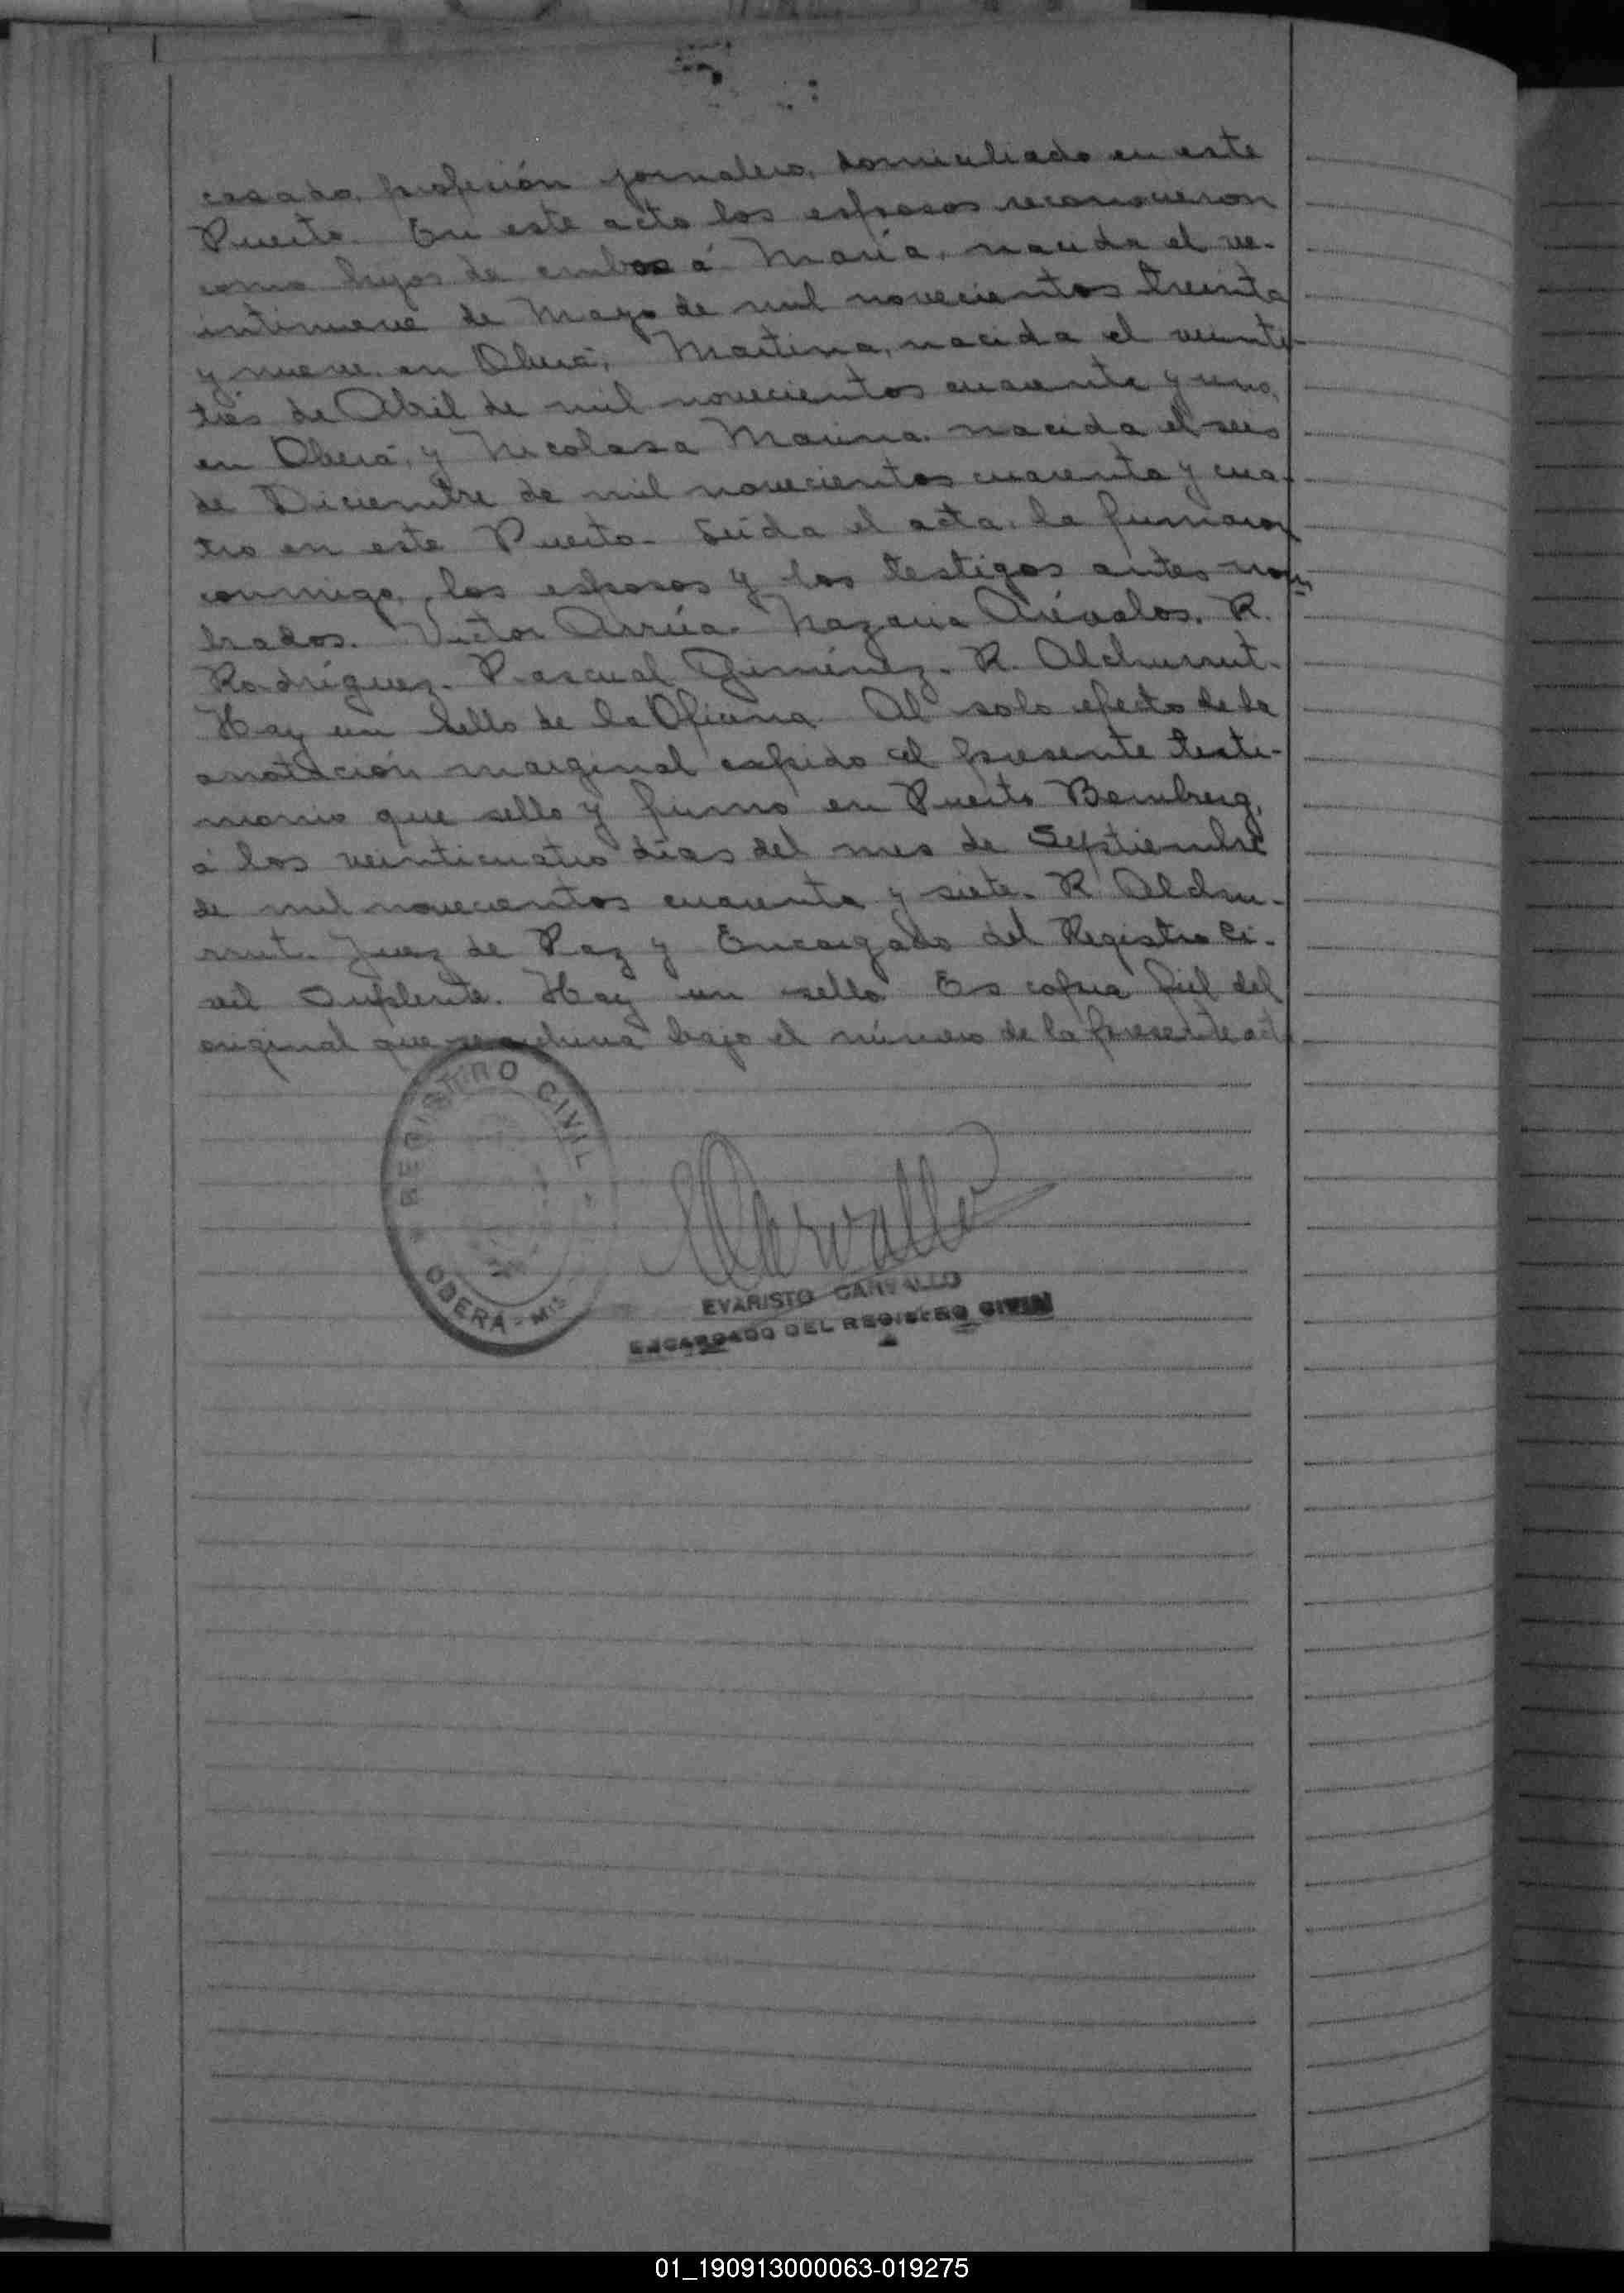 casado, profesión jornalero, domiciliado en este
Puerto. En este acto los esposos reconocieron
como hijos de ambos á María, nacida el ve-
intinueve de Mayo de mil novecientos treinta
y nueve, en Oberá, Martina, nacida el veinti-
tres de Abril de mil novecientos cuarenta y uno,
en Oberá, y Nicolasa Marina, nacida el seis
de Diciembre de mil novecientos cuarenta y cua-
tro en este Puerto. Leída el acta, la firmaron
conmigo, los esposos y los testigos antes nom
brados. Victor Arrúa. Nazaria Arévalos. R.
Rodríguez. Pascual Giménez. R. Alchurrut.
Hay un sello de la Oficina. Al solo efecto de la
anotación marginal expido el presente testi-
monio que sello y firmo en Puerto Bemberg,
á los veinticuatro días del mes de Septiembre
de mil novecientos cuarenta y siete. R. Alchu-
rrut. Juez de Paz y Encargado del Registro Ci-
vil Suplente. Hay un sello. Es copia fiel del
original que se archiva bajo el número de la presente acta
REGISTRO CIVIL
OBERÁ - MIS
Carvallo
EVARISTO CARVALLO
ENCARGADO DEL REGISTRO CIVIL
01_190913000063-019275